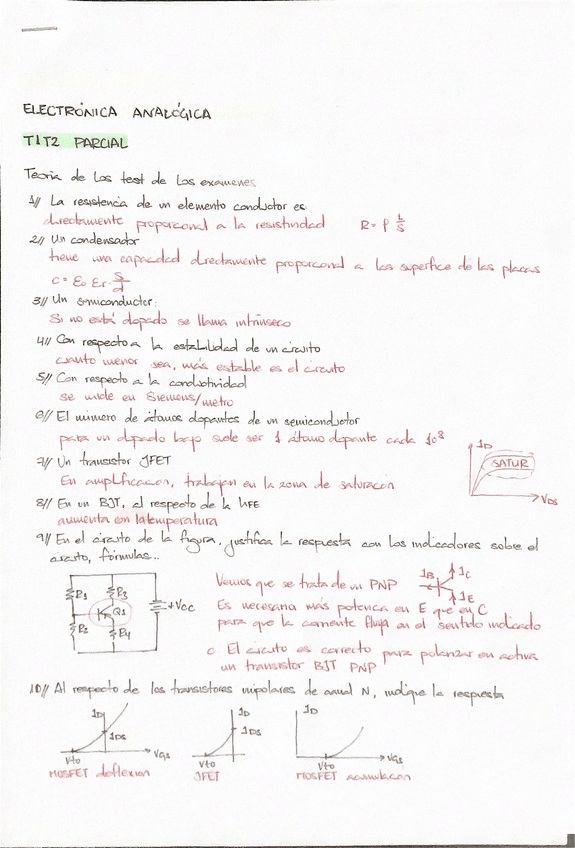 ELECTRÓNICA ANALÓGICA
T1T2 PARCIAL
Teoria de los test de los examenes
1// La resistencia de un elemento conductor es
directamente proporcional a la resistividad R = ρ L/S
2// Un condensador
tiene una capacidad directamente proporcional a las superficie de las placas
C = ε₀ εr · S/d
3// Un semiconductor:
Si no está dopado se llama intrínseco
4// Con respecto a la estabilidad de un circuito
cuanto menor sea, más estable es el circuito
5// Con respecto a la conductividad
se mide en Siemens/metro
6// El número de átomos dopantes de un semiconductor
para un dopado bajo suele ser 1 átomo dopante cada 10⁸
7// Un transistor JFET
En amplificación, trabajan en la zona de saturación
ID
SATUR
VDS
8// En un BJT, al respecto de la hFE
aumenta con la temperatura
9// En el circuito de la figura, justifica la respuesta con los indicadores sobre el
circuito, fórmulas...
R1 R3 Q1 +Vcc
R2 R4
Vemos que se trata de un PNP
IB IC IE
Es necesaria más potencia en E que en C
para que la corriente fluya en el sentido indicado
c El circuito es correcto para polarizar en activa
un transistor BJT PNP
10// Al respecto de los transistores unipolares de canal N, indique la respuesta
ID IDS Vto VGS
ID IDS Vto
ID Vto VGS
MOSFET deflexion JFET MOSFET acumulacion